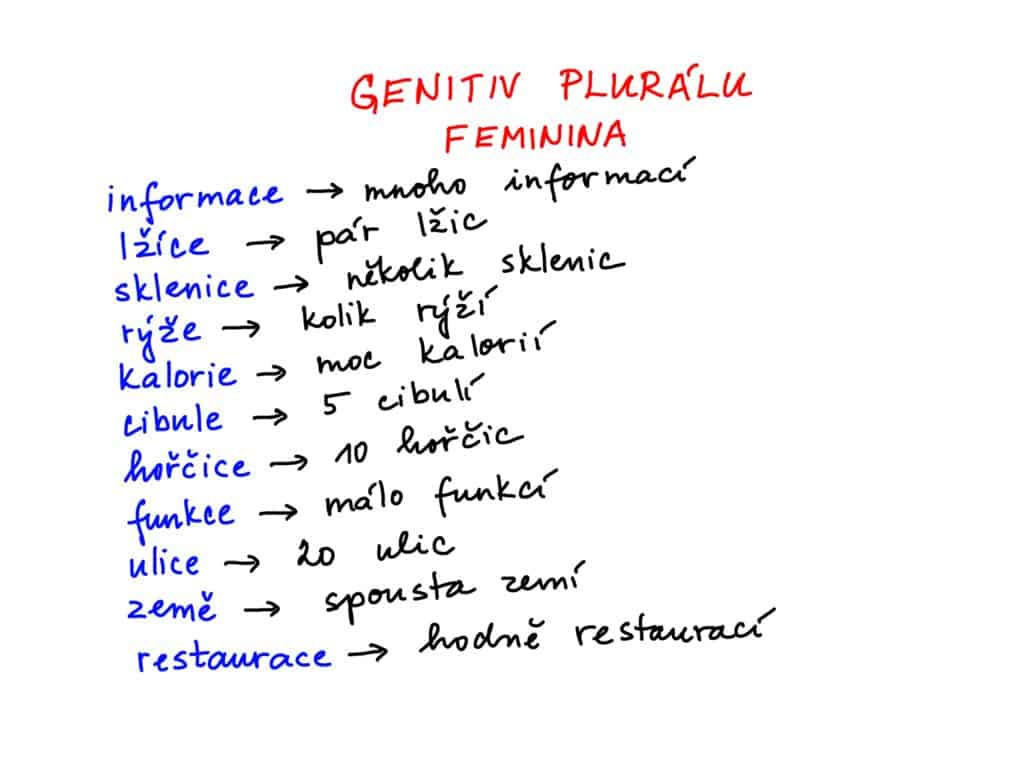 GENITIV PLURÁLU
FEMININA
informace → mnoho informací
lžíce → pár lžic
sklenice → několik sklenic
rýže → kolik rýží
kalorie → moc kalorií
cibule → 5 cibulí
hořčice → 10 hořčic
funkce → málo funkcí
ulice → 20 ulic
země → spousta zemí
restaurace → hodně restaurací